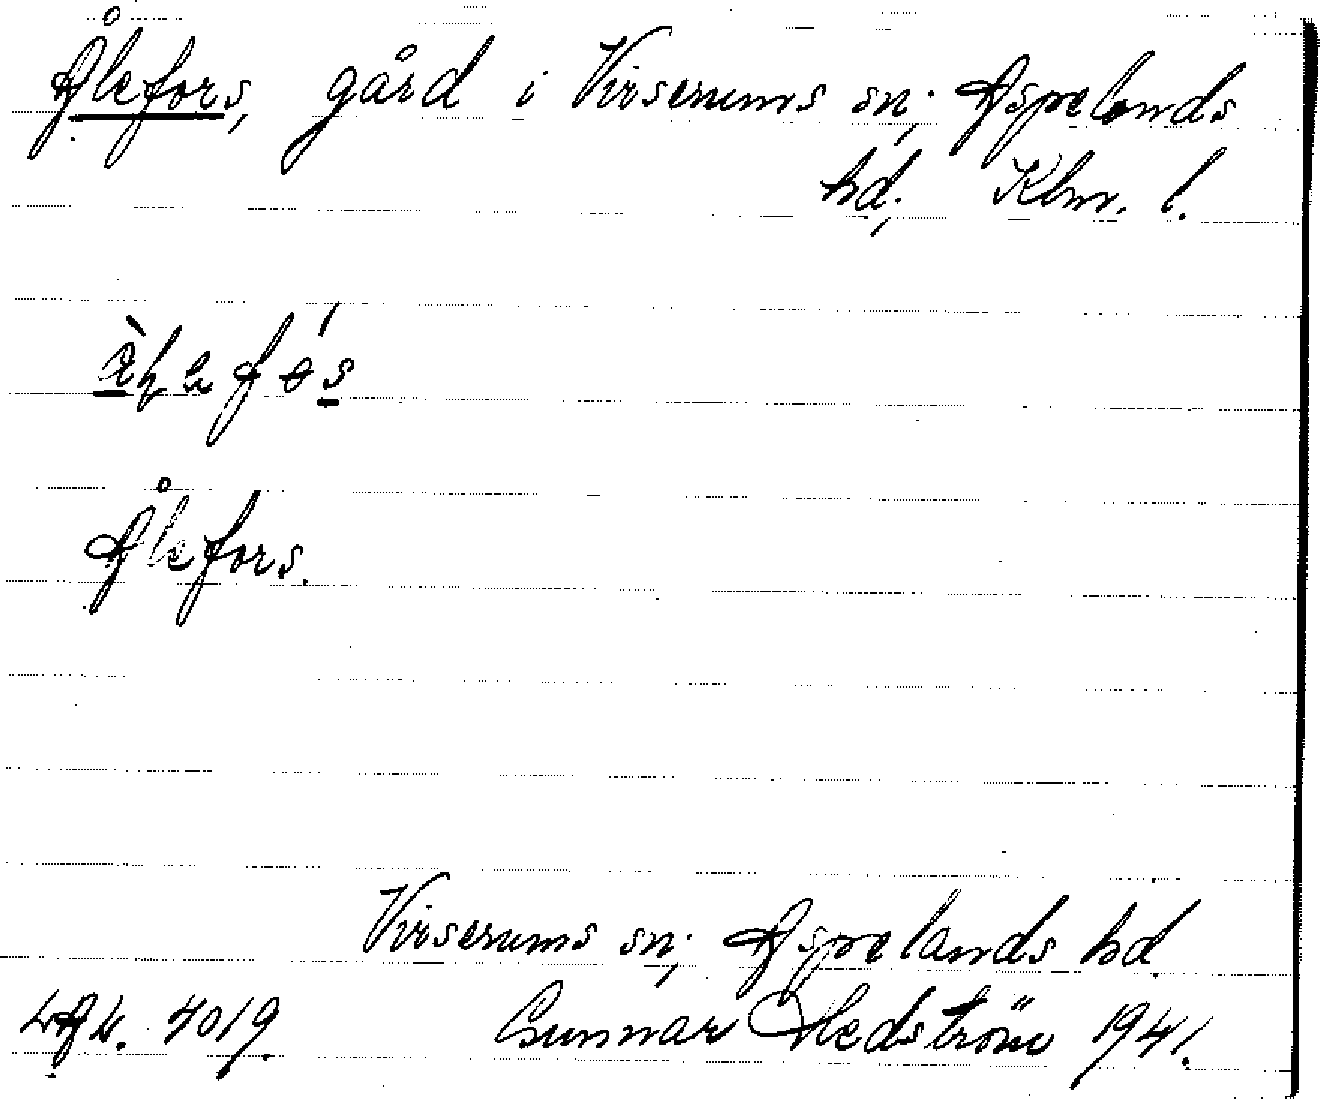 Ålefors, gård i Virserums sn; Aspelands
hd; Klm. l.
Ålefors.
Virserums sn; Aspelands hd.
4019. Gunnar Hedström 1941.